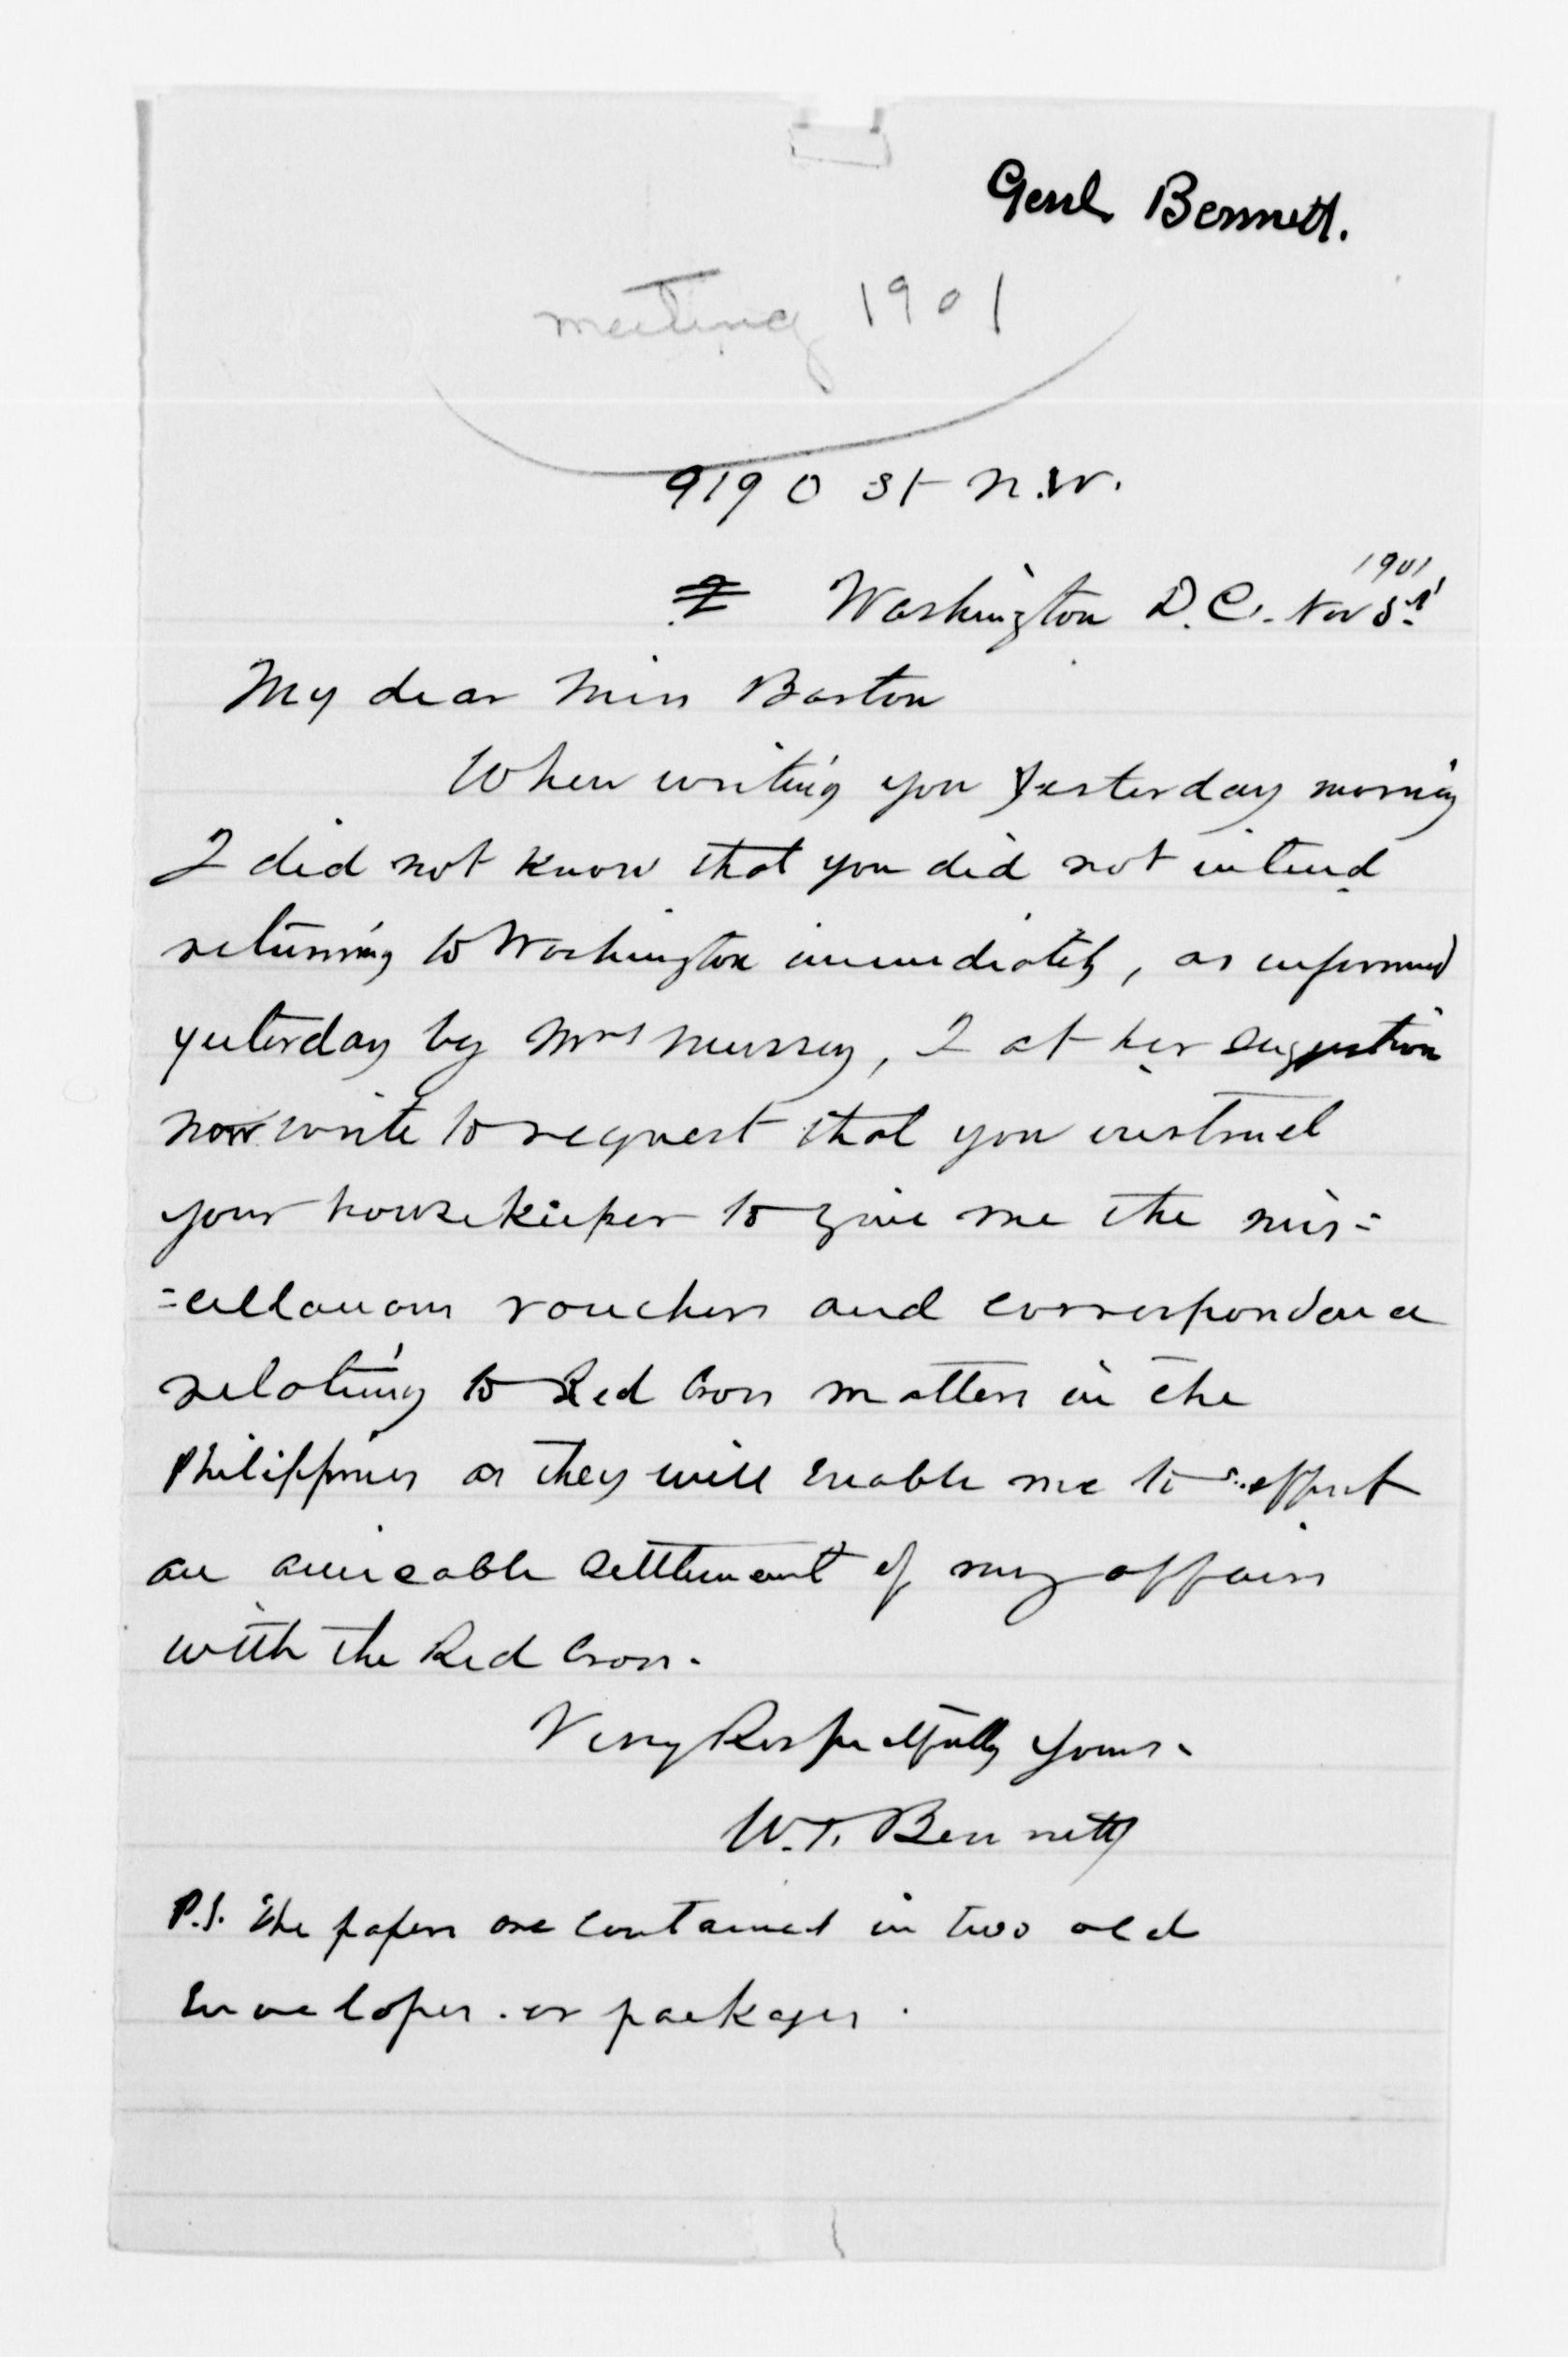 Genl. Bennett.
meeting 1901
919 O St N.W.
Washington D.C. Nov 1901
My dear Miss Barton
When writing you yesterday morning
I did not know that you did not intend
returning to Washington immediately, as informed
yesterday by Mrs Mussey, I at her suggestion
now write to request that you instruct
your housekeeper to give me the mis=
=cellaneous vouchers and correspondence
relating to Red Cross matters in the
Philippines as they will enable me to effect
an amicable settlement of my affairs
with the Red Cross.
Very Respectfully yours.
W.T. Bennett
P.S. The papers are contained in two old
Envelopes. or packages.